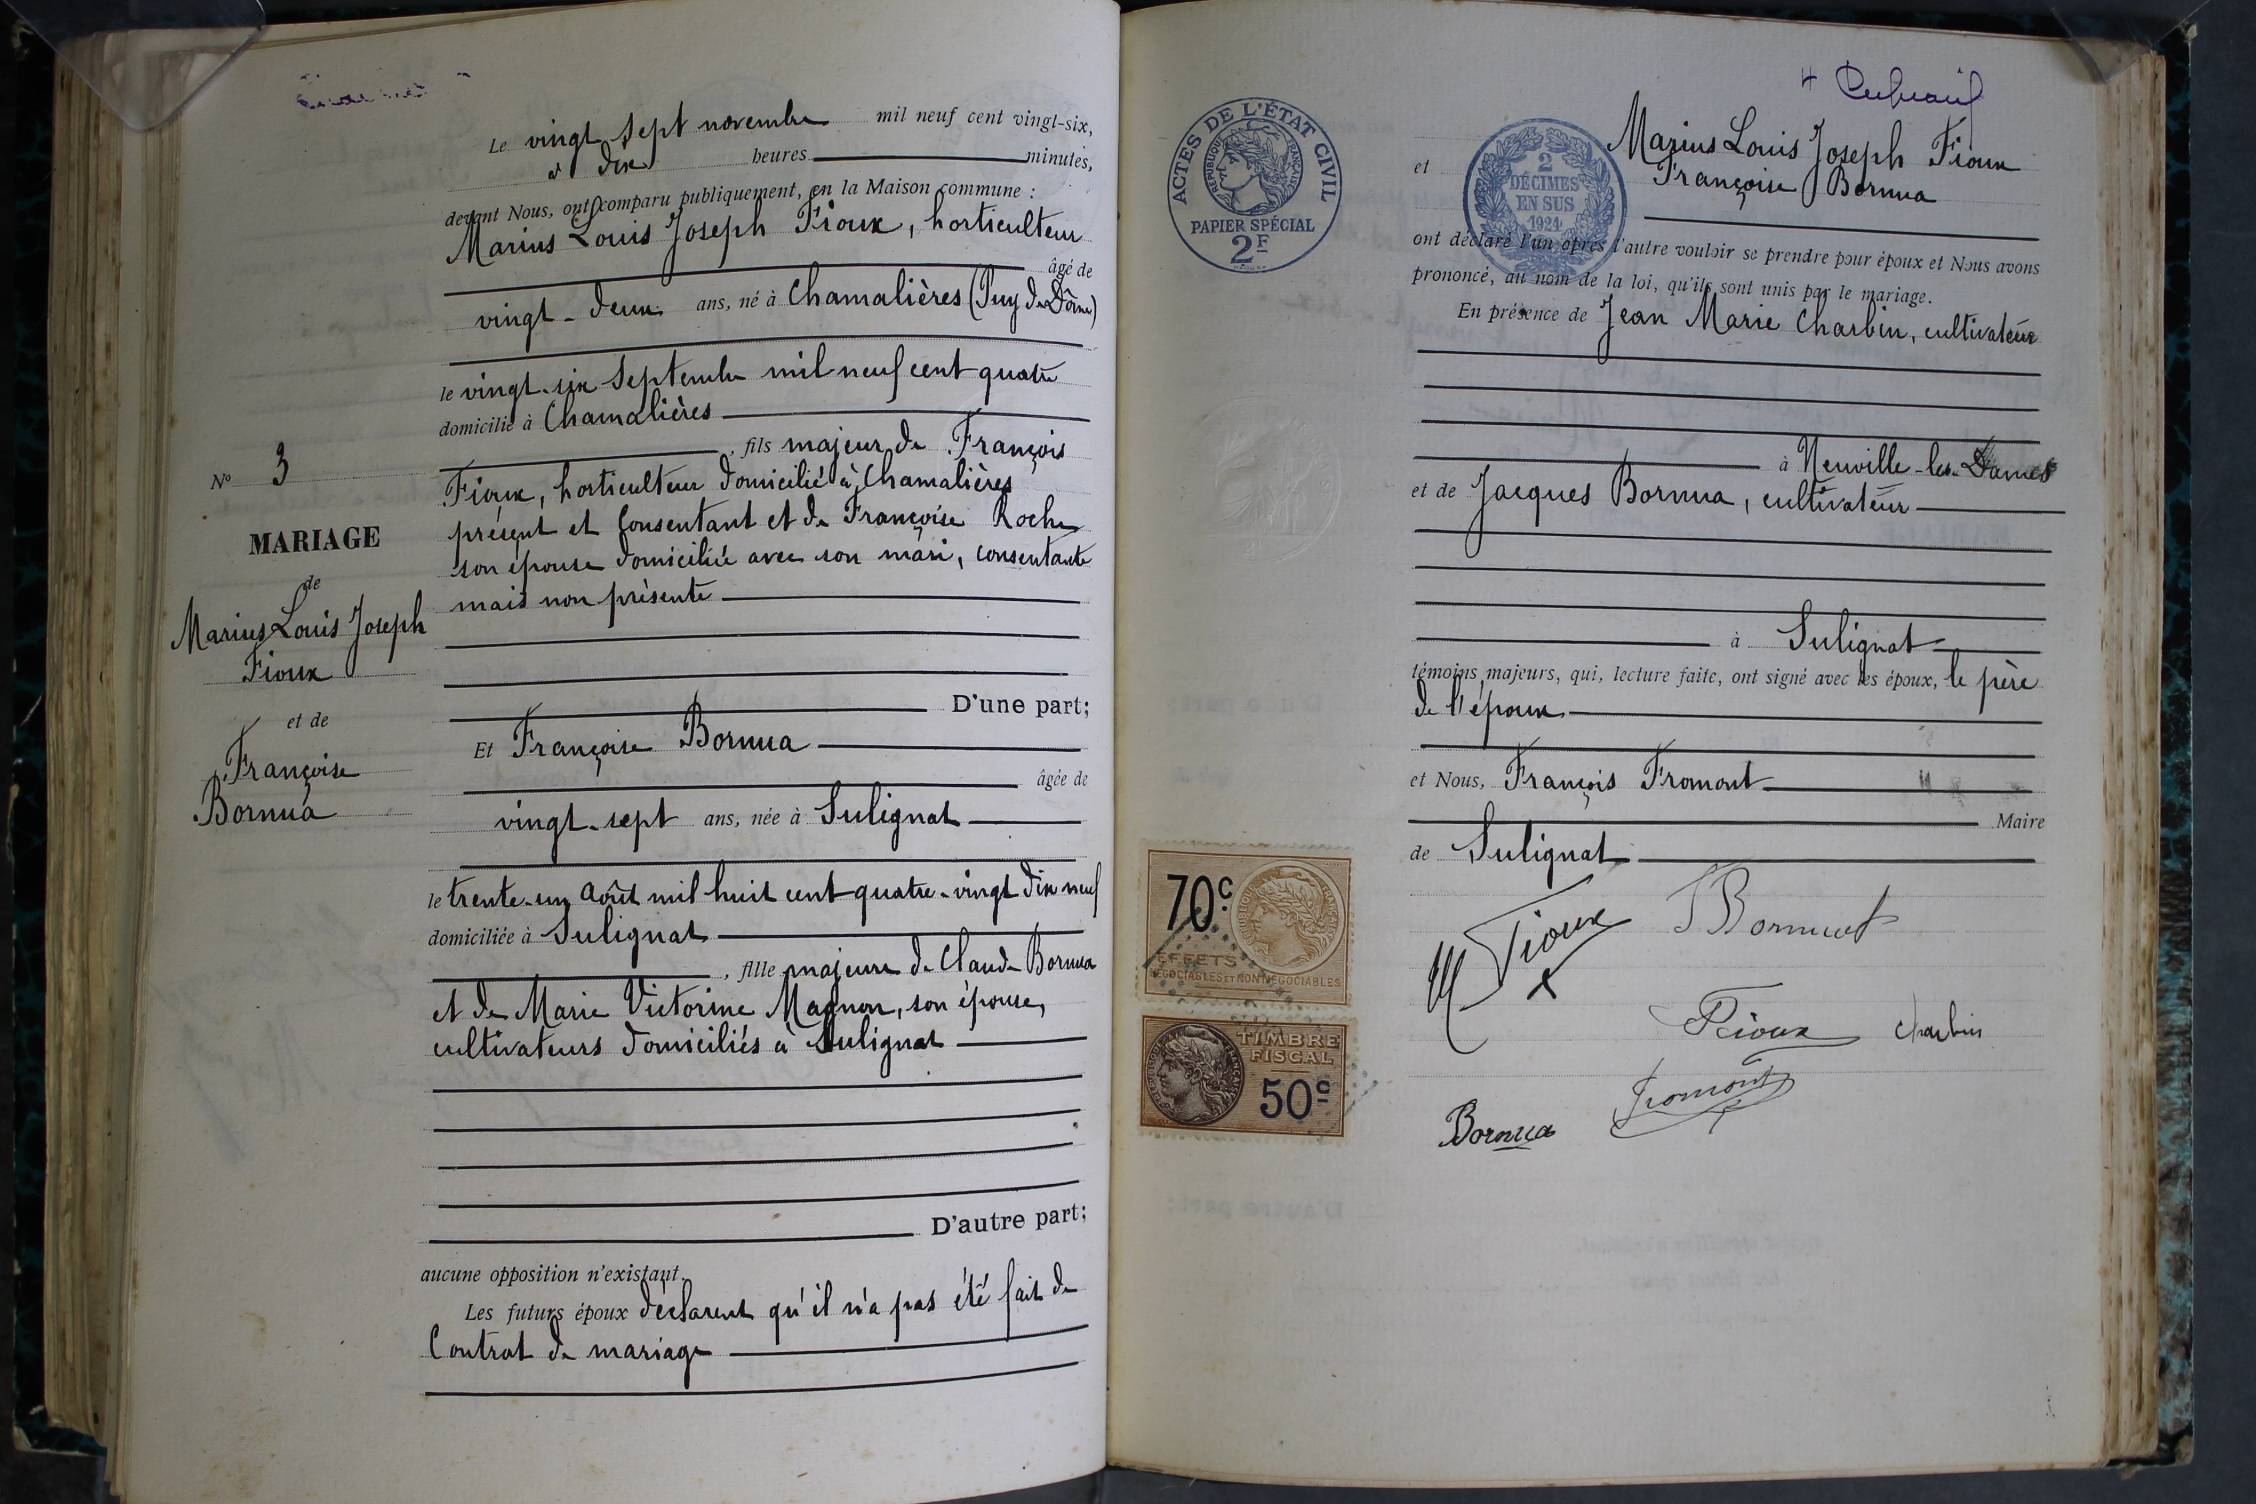 Le vingt sept novembre mil neuf cent vingt-six,
à dix heures minutes,
devant Nous, ont comparu publiquement, en la Maison commune :
Marius Louis Joseph Fioux, horticulteur
âgé de
vingt-deux ans, né à Chamalières (Puy de Dôme)
le vingt-six Septembre mil neuf cent quatre
domicilié à Chamalières
, fils majeur de François
Fioux, horticulteur domicilié à Chamalières
présent et Consentant et de Françoise Roche
son épouse domiciliée avec son mari, consentante
mais non présente
D'une part;
N° 3
MARIAGE
de
Marius Louis Joseph
Fioux
et de
Françoise
Bornua
Et Françoise Bornua
âgée de
vingt-sept ans, née à Sulignat
le trente-un Août mil huit cent quatre-vingt dix neuf
domiciliée à Sulignat
, fille majeure de Claude Bornua
et de Marie Victorine Magnon, son épouse,
cultivateurs domiciliés à Sulignat
D'autre part;
aucune opposition n'existant.
Les futurs époux déclarent qu'il n'a pas été fait de
Contrat de mariage
ACTES DE L'ÉTAT CIVIL
RÉPUBLIQUE FRANÇAISE
PAPIER SPÉCIAL
2F
2
DÉCIMES
EN SUS
1924
Marius Louis Joseph Fioux
et Françoise Bornua
ont déclaré l'un après l'autre vouloir se prendre pour époux et Nous avons
prononcé, au nom de la loi, qu'ils sont unis par le mariage.
En présence de Jean Marie Charbin, cultivateur
à Neuville-les-Dames
et de Jacques Bornua, cultivateur
à Sulignat
témoins majeurs, qui, lecture faite, ont signé avec les époux, le père
de l'époux
et Nous, François Fromont
Maire
de Sulignat
M Fioux
F Bornuat
Fioux
Charbin
Fromont
Bornua
70c
EFFETS
NÉGOCIABLES ET NON NÉGOCIABLES
TIMBRE
FISCAL
50c